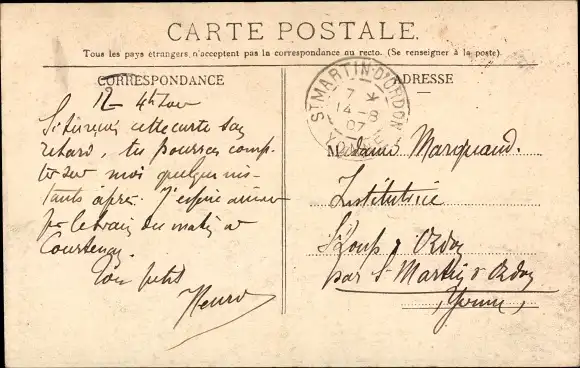 CARTE POSTALE.
Tous les pays étrangers n'acceptent pas la correspondance au recto. (Se renseigner à la poste).
CORRESPONDANCE
ADRESSE
ST MARTIN-D'ORDON
YONNE
7 *
14-8
07
12 4h soir
Si tu reçois cette carte sans
retard, tu pourras comp-
ter sur moi quelques ins-
tants après. J'espère arriver
par le train du matin à
Courtenay.
Ton petit
Henri
Madame Marquand.
Institutrice
St Loup d'Ordon
par St Martin d'Ordon
(Yonne)